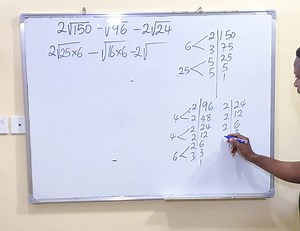 2√150 - √96 - 2√24
2√25×6 - √16×6 - 2√
2 | 150
6 < 3 | 75
5 | 25
25 < 5 | 5
1
2 | 96
4 < 2 | 48
2 | 24
4 < 2 | 12
2 | 6
6 < 3 | 3
1
2 | 24
2 | 12
2 | 6